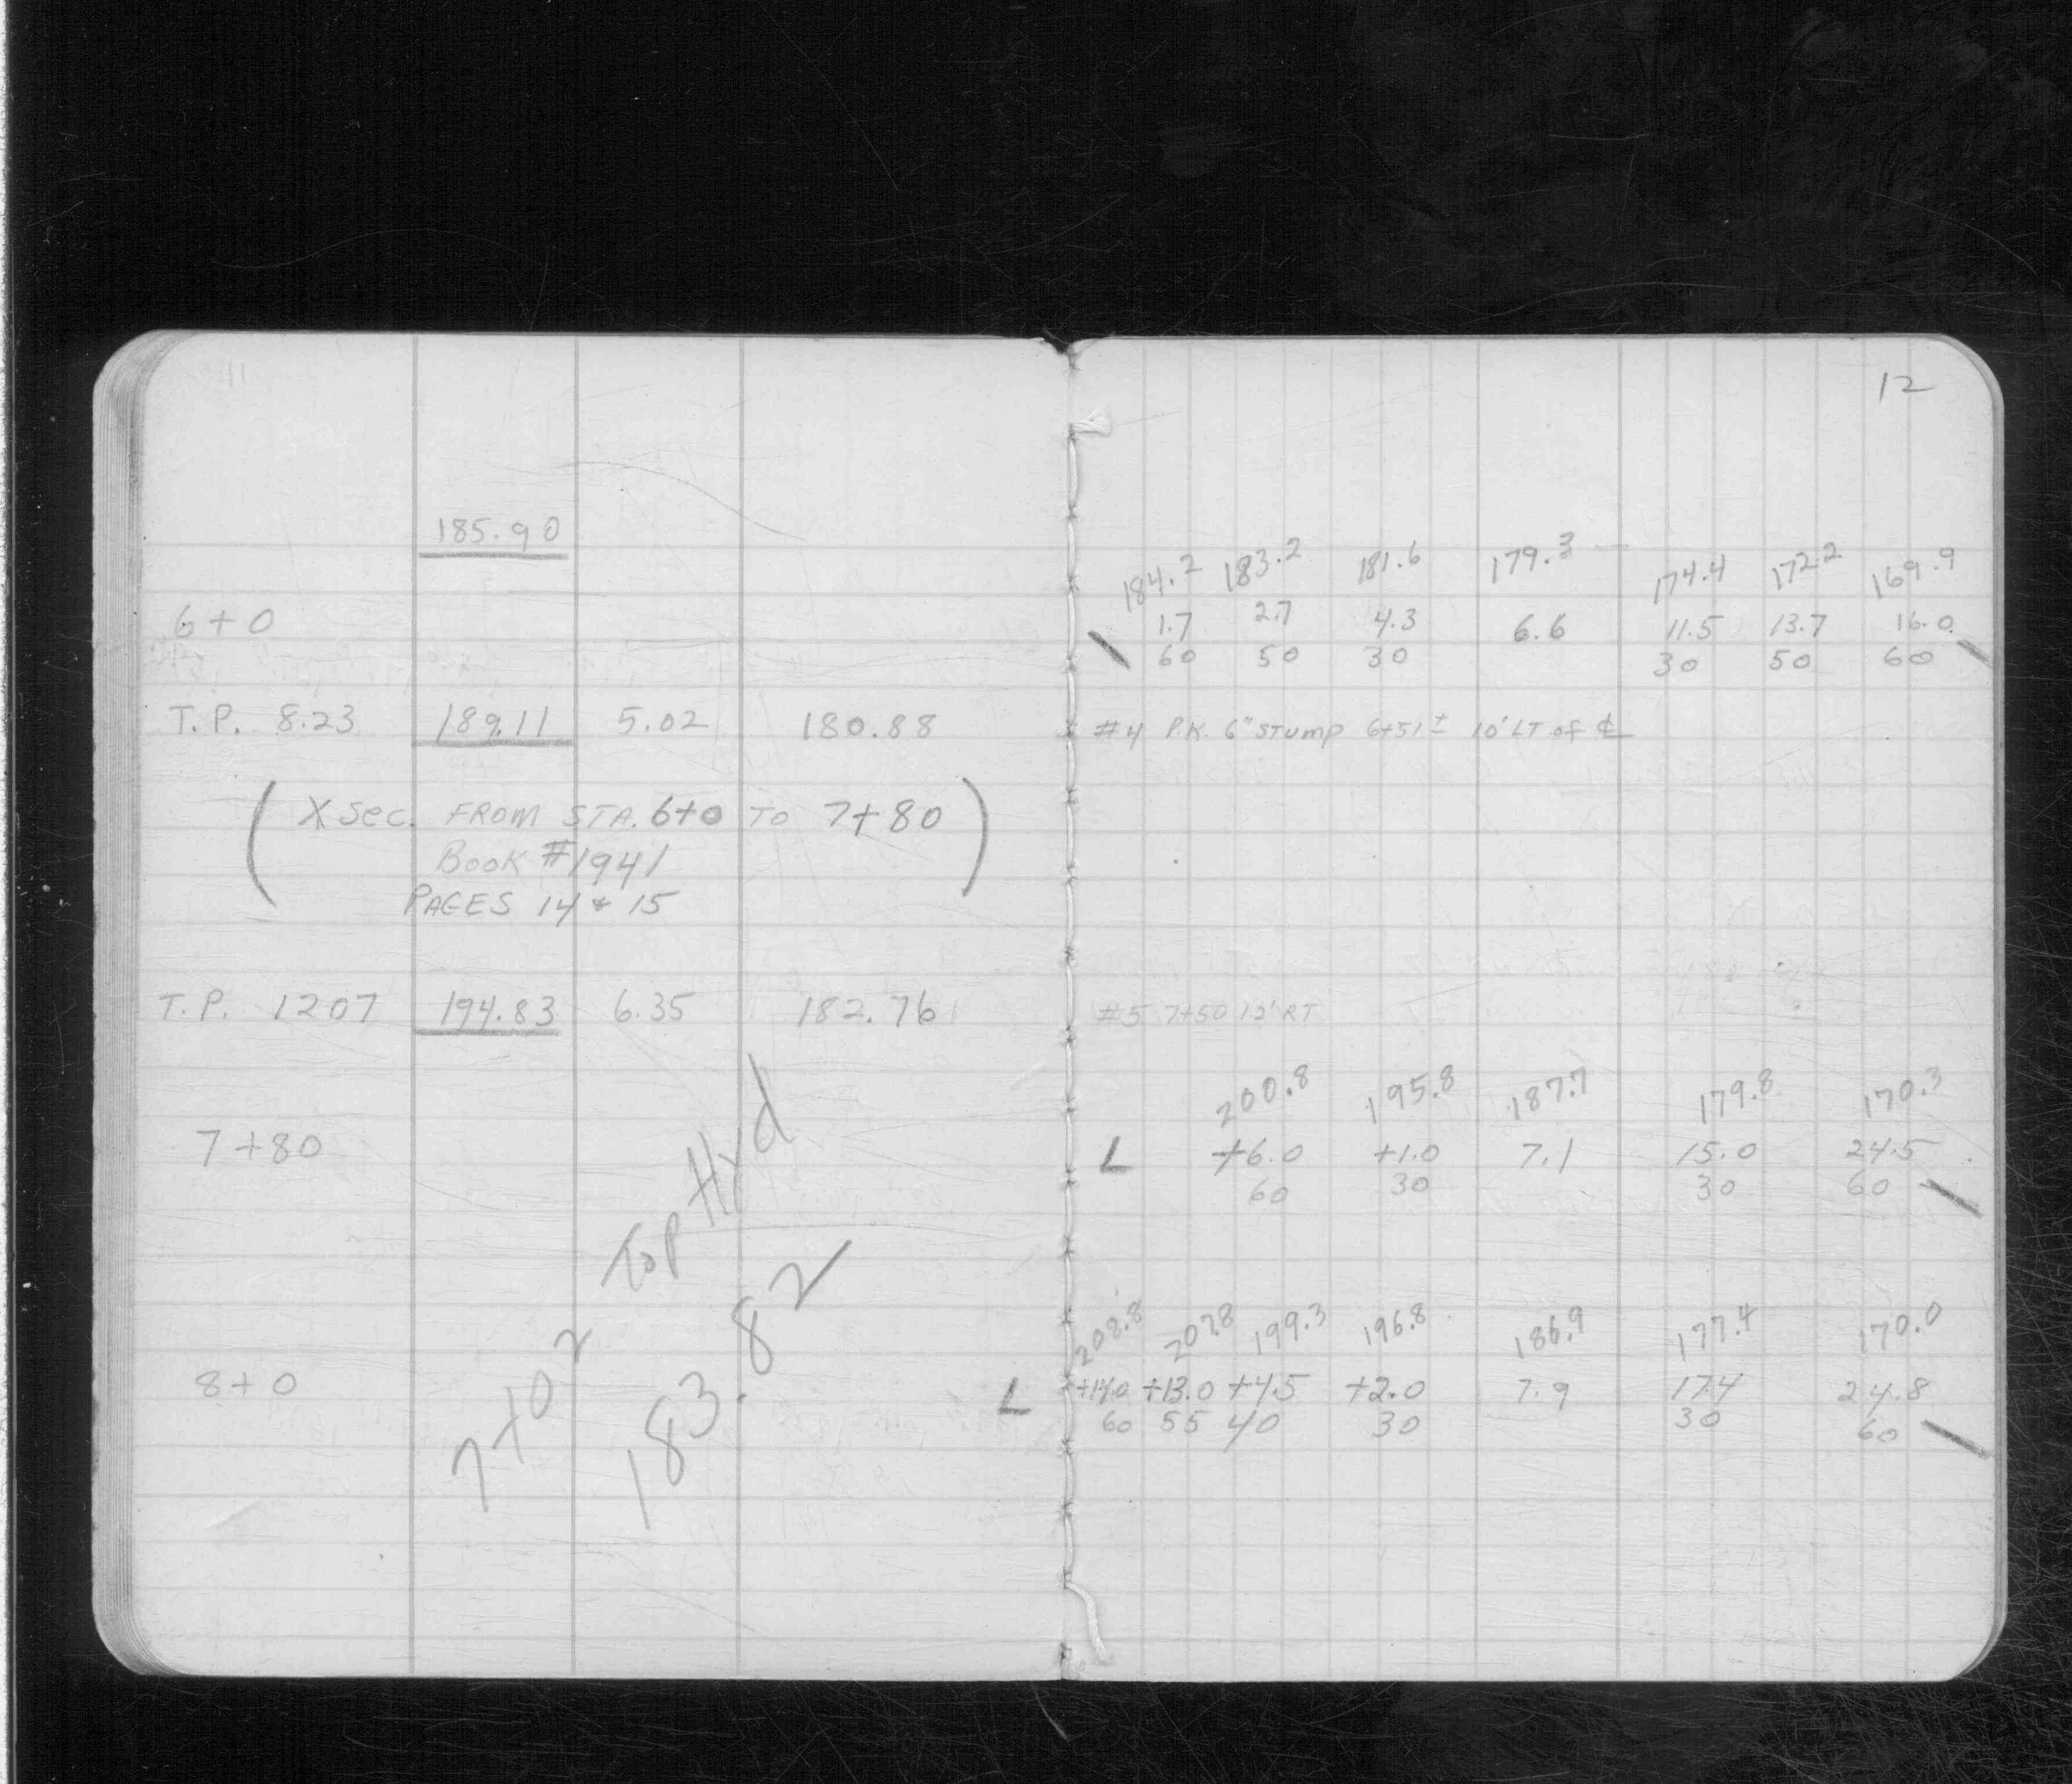 11
185.90
6+0
T.P. 8.23 189.11 5.02 180.88
( X Sec. FROM STA. 6+0 TO 7+80 )
BOOK #1941
PAGES 14 & 15
T.P. 1207 194.83 6.35 182.76
7+80
8+0
Top Hyd
7+02
183.82
12
184.2 183.2 181.6 179.3 174.4 172.2 169.9
1.7 2.7 4.3 6.6 11.5 13.7 16.0
60 50 30 30 50 60
#4 P.K. 6" STump 6+51± 10' LT of ℄
#5 7+50 12' RT
200.8 195.8 187.7 179.8 170.3
+6.0 +1.0 7.1 15.0 24.5
60 30 30 60
208.8 207.8 199.3 196.8 186.9 177.4 170.0
+14.0 +13.0 +4.5 +2.0 7.9 17.4 24.8
60 55 40 30 30 60